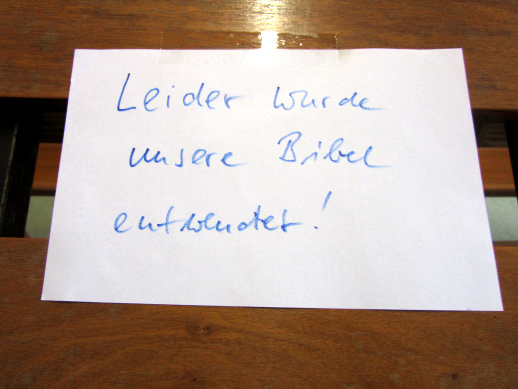 Leider wurde
unsere Bibel
entwendet!